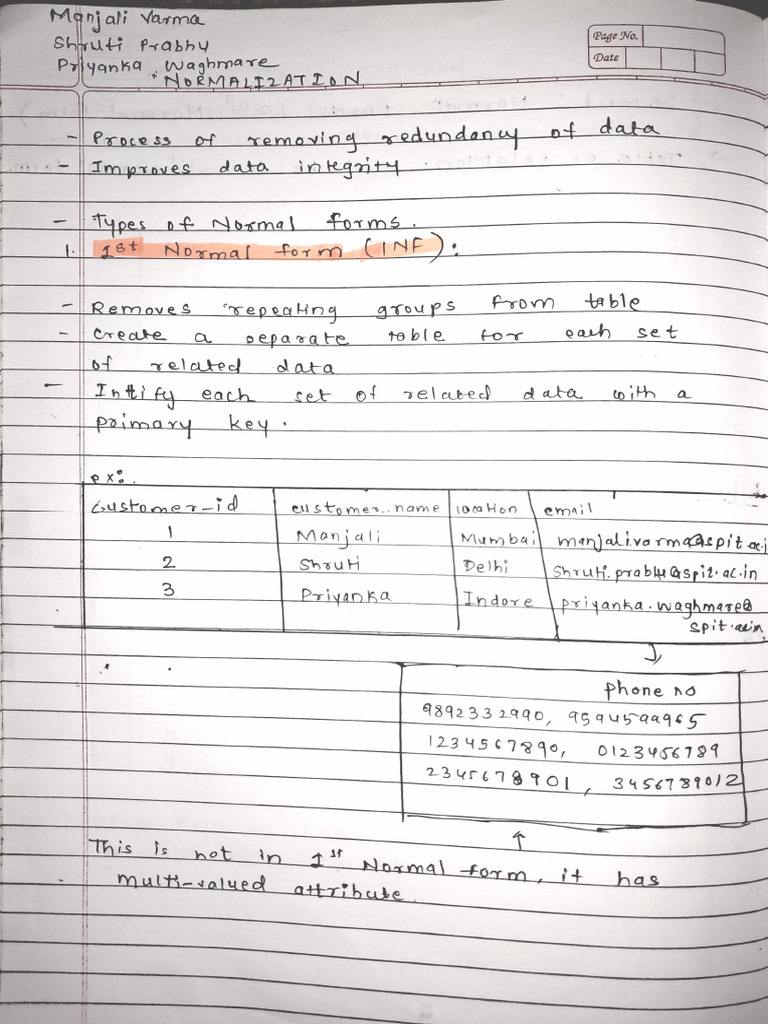 Manjali Varma
Shruti Prabhu
Priyanka Waghmare
Page No.
Date
NORMALIZATION
- Process of removing redundancy of data
- Improves data integrity.
- Types of Normal forms.
1. 1st Normal form (1NF):
- Removes repeating groups from table
- Create a separate table for each set
of related data
- Intify each set of related data with a
primary key.
ex:
Customer-id customer-name location email
1 Manjali Mumbai manjali.varma@spit.ac.i
2 Shruti Delhi shruti.prabhu@spit.ac.in
3 Priyanka Indore priyanka.waghmare@
spit.ac.in
phone no
9892332990, 9594599965
1234567890, 0123456789
2345678901, 3456789012
This is not in 1st Normal form, it has
multi-valued attribute.